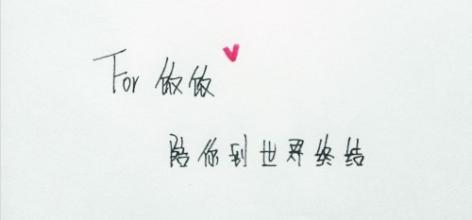 For 做做
陪你到世界终结